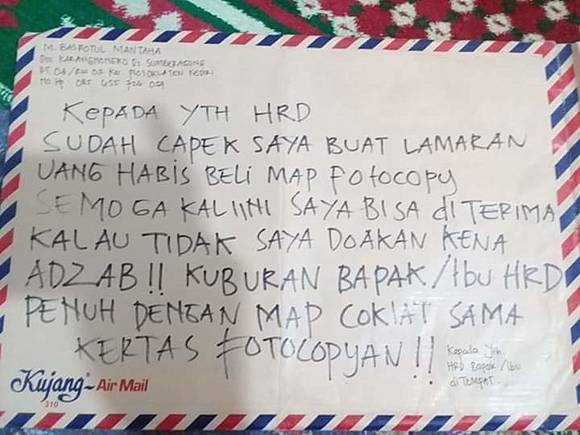 M. BASROTUL MANTAHA
Dsn KARANGNONGKO Ds SUMBERAGUNG
RT 04 / RW 02 Kec PLOSOKLATEN KEDIRI
No Hp 085 655 724 059
KEPADA YTH HRD
SUDAH CAPEK SAYA BUAT LAMARAN
UANG HABIS BELI MAP FOTOCOPY
SEMOGA KALIINI SAYA BISA diTERIMA
KALAU TIDAK SAYA DOAKAN KENA
ADZAB!! KUBURAN BAPAK/Ibu HRD
PENUH DENGAN MAP COKlAT SAMA
KERTAS FOTOCOPYAN!!
Kepada Yth.
HRD Bapak /Ibu
diTEMPAT
Kujang Air Mail
310